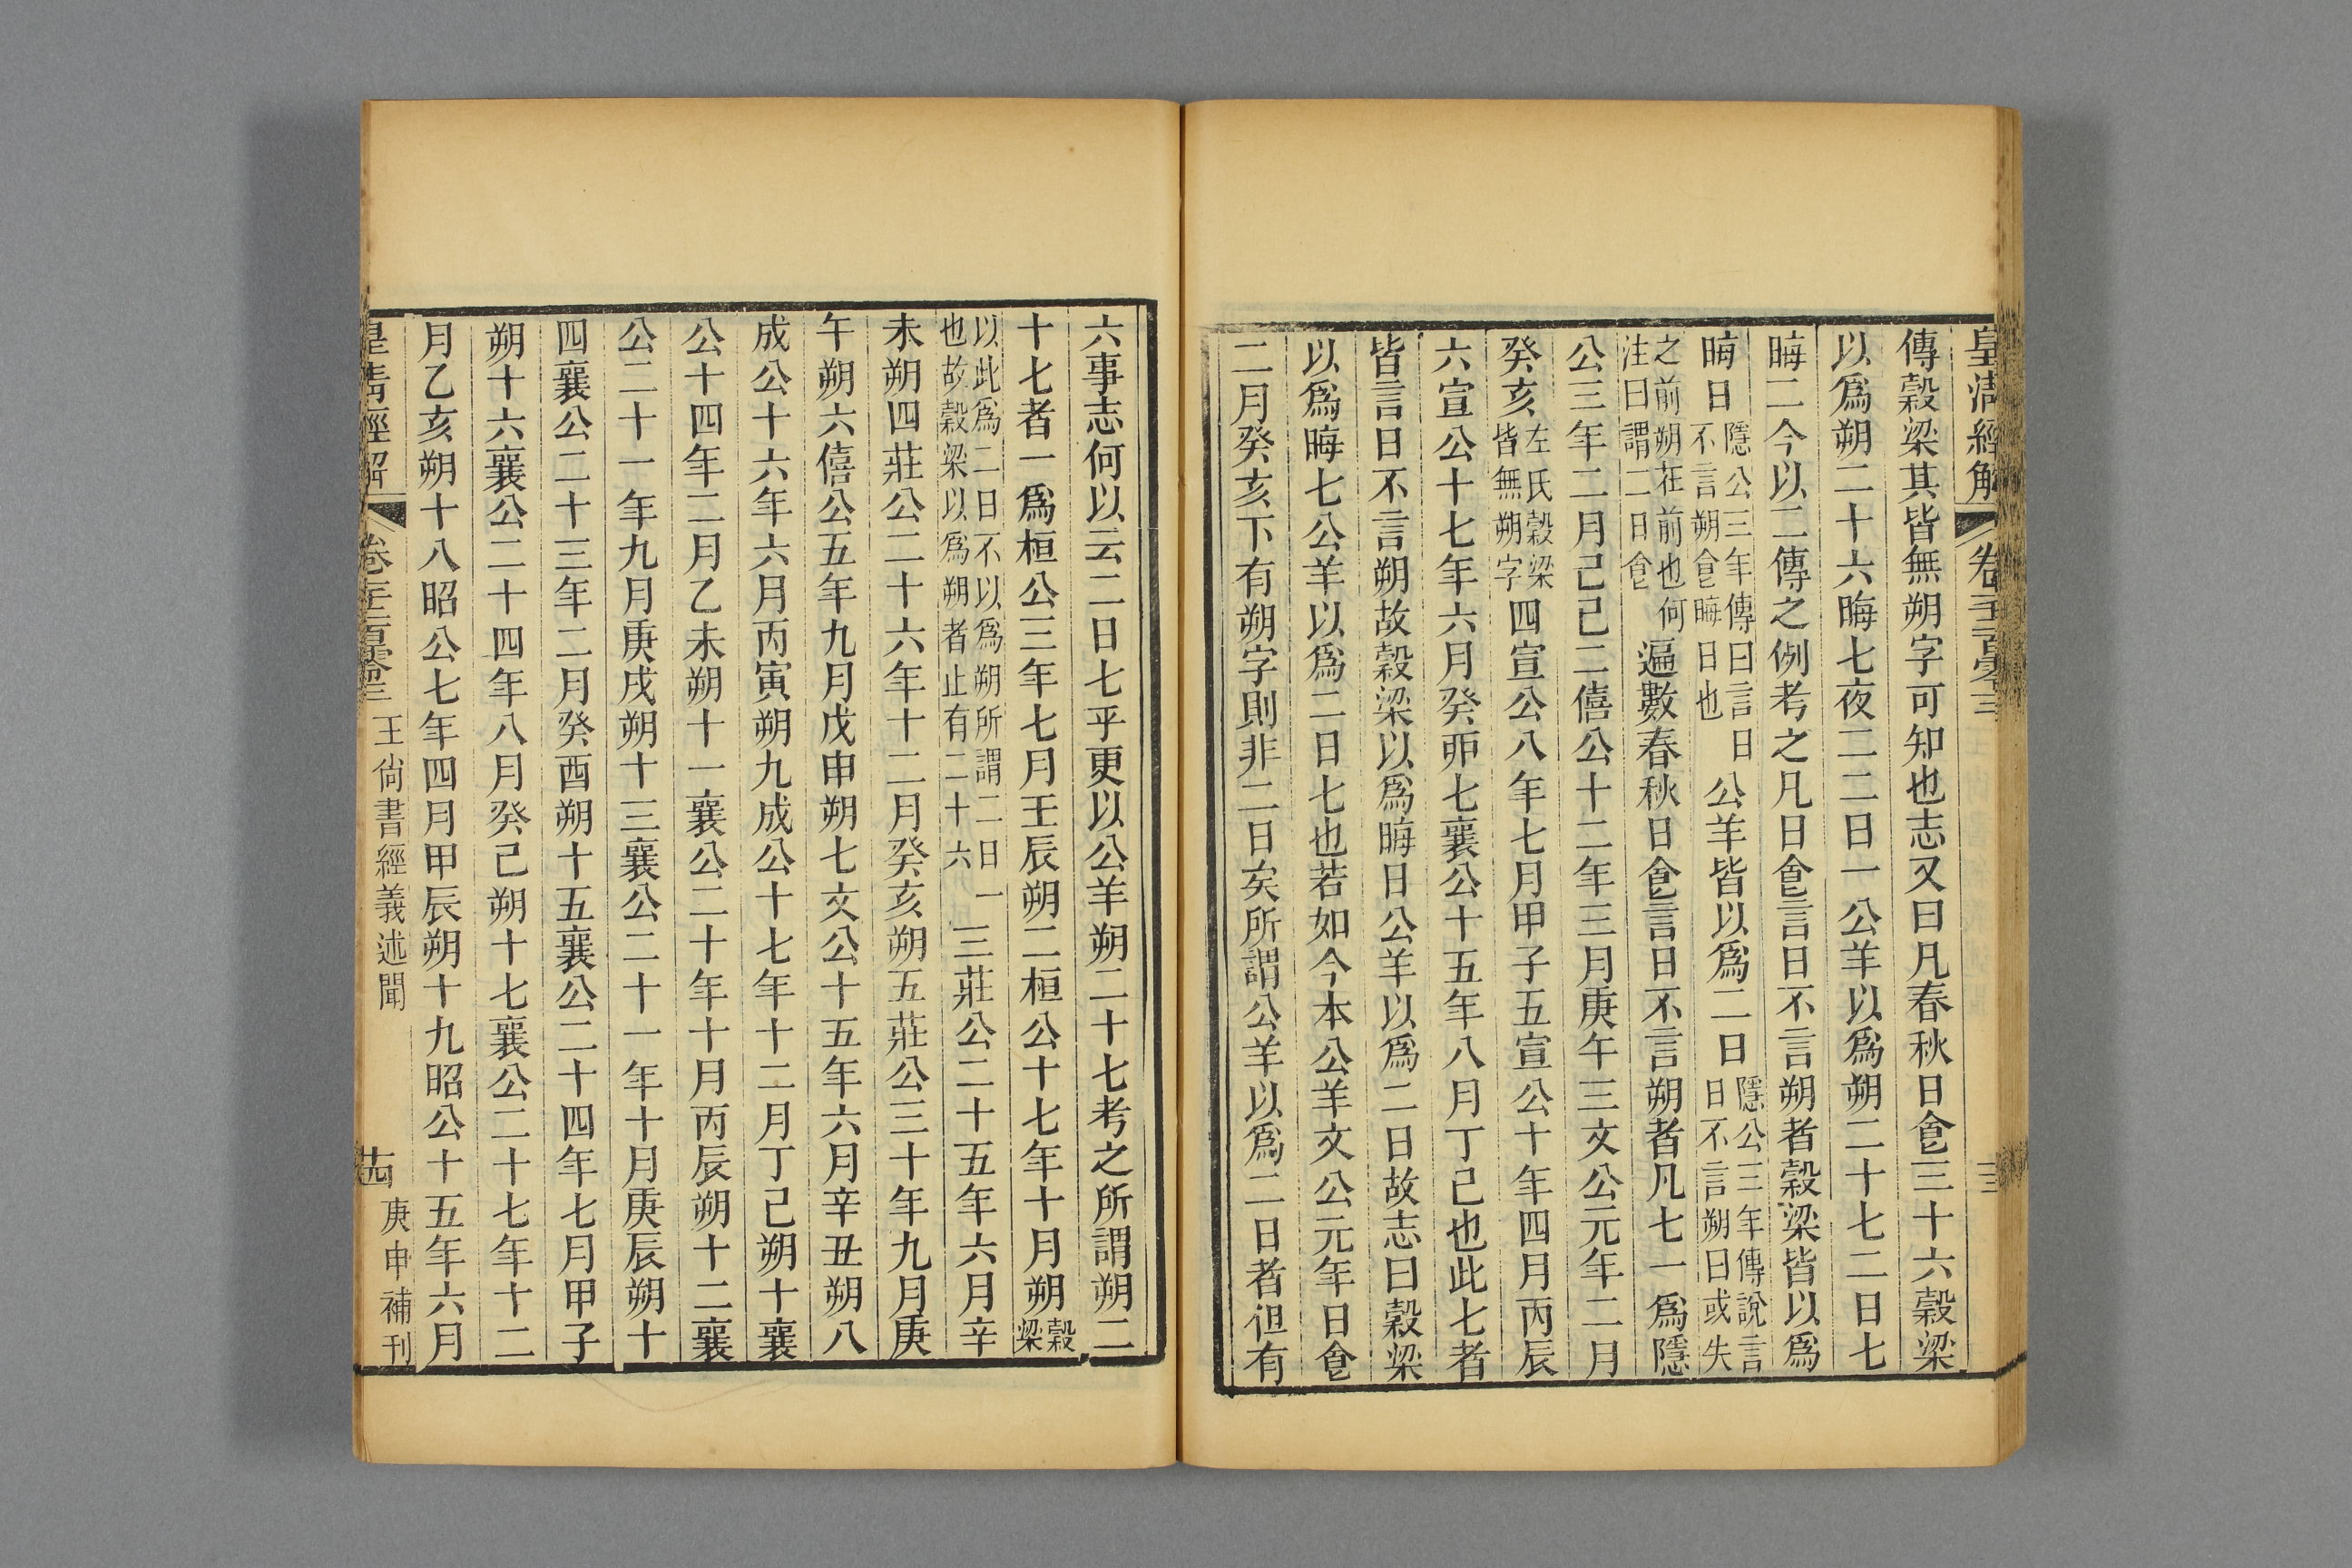 皇清經解 卷千二百零三
傳穀梁其皆無朔字可知也志又曰凡春秋日食三十六穀梁
以爲朔二十六晦七夜二二日一公羊以爲朔二十七二日七
晦二今以二傳之例考之凡日食言日不言朔者穀梁皆以爲
晦日隱公三年傳曰言日不言朔食晦日也公羊皆以爲二日隱公三年傳說言日不言朔曰或失
之前朔在前也何注曰謂二日食遍數春秋日食言日不言朔者凡七一爲隱
公三年二月己巳二僖公十二年三月庚午三文公元年二月
癸亥左氏穀梁皆無朔字四宣公八年七月甲子五宣公十年四月丙辰
六宣公十七年六月癸卯七襄公十五年八月丁巳也此七者
皆言日不言朔故穀梁以爲晦日公羊以爲二日故志曰穀梁
以爲晦七公羊以爲二日七也若如今本公羊文公元年日食
二月癸亥下有朔字則非二日矣所謂公羊以爲二日者但有
六事志何以云二日七乎更以公羊朔二十七考之所謂朔二
十七者一爲桓公三年七月壬辰朔二桓公十七年十月朔穀梁
以此爲二日不以爲朔所謂二日一也故穀梁以爲朔者止有二十六三莊公二十五年六月辛
未朔四莊公二十六年十二月癸亥朔五莊公三十年九月庚
午朔六僖公五年九月戊申朔七文公十五年六月辛丑朔八
成公十六年六月丙寅朔九成公十七年十二月丁巳朔十襄
公十四年二月乙未朔十一襄公二十年十月丙辰朔十二襄
公二十一年九月庚戌朔十三襄公二十一年十月庚辰朔十
四襄公二十三年二月癸酉朔十五襄公二十四年七月甲子
朔十六襄公二十四年八月癸巳朔十七襄公二十七年十二
月乙亥朔十八昭公七年四月甲辰朔十九昭公十五年六月
皇清經解 卷千二百零三 王尙書經義述聞 古 庚申補刊